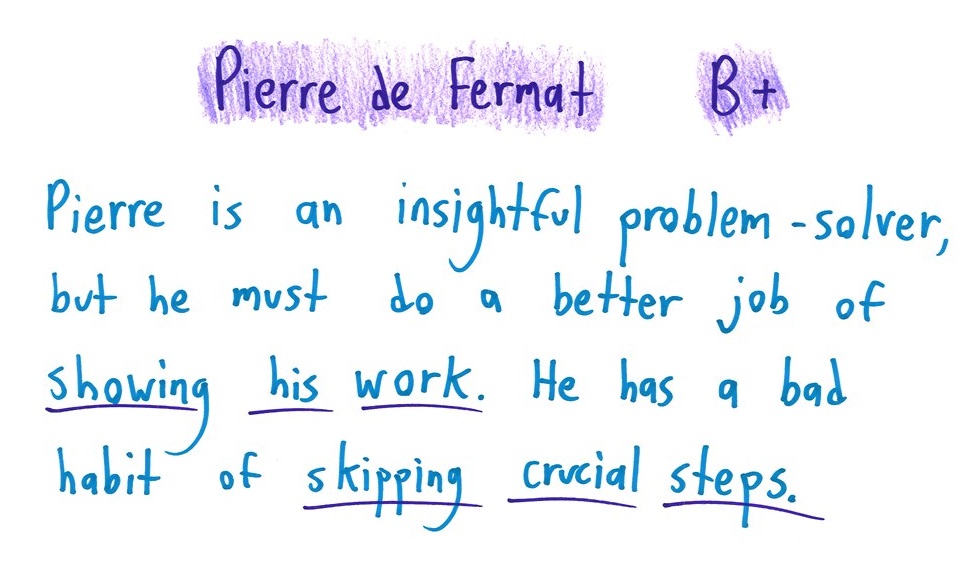 Pierre de Fermat B+
Pierre is an insightful problem-solver,
but he must do a better job of
showing his work. He has a bad
habit of skipping crucial steps.